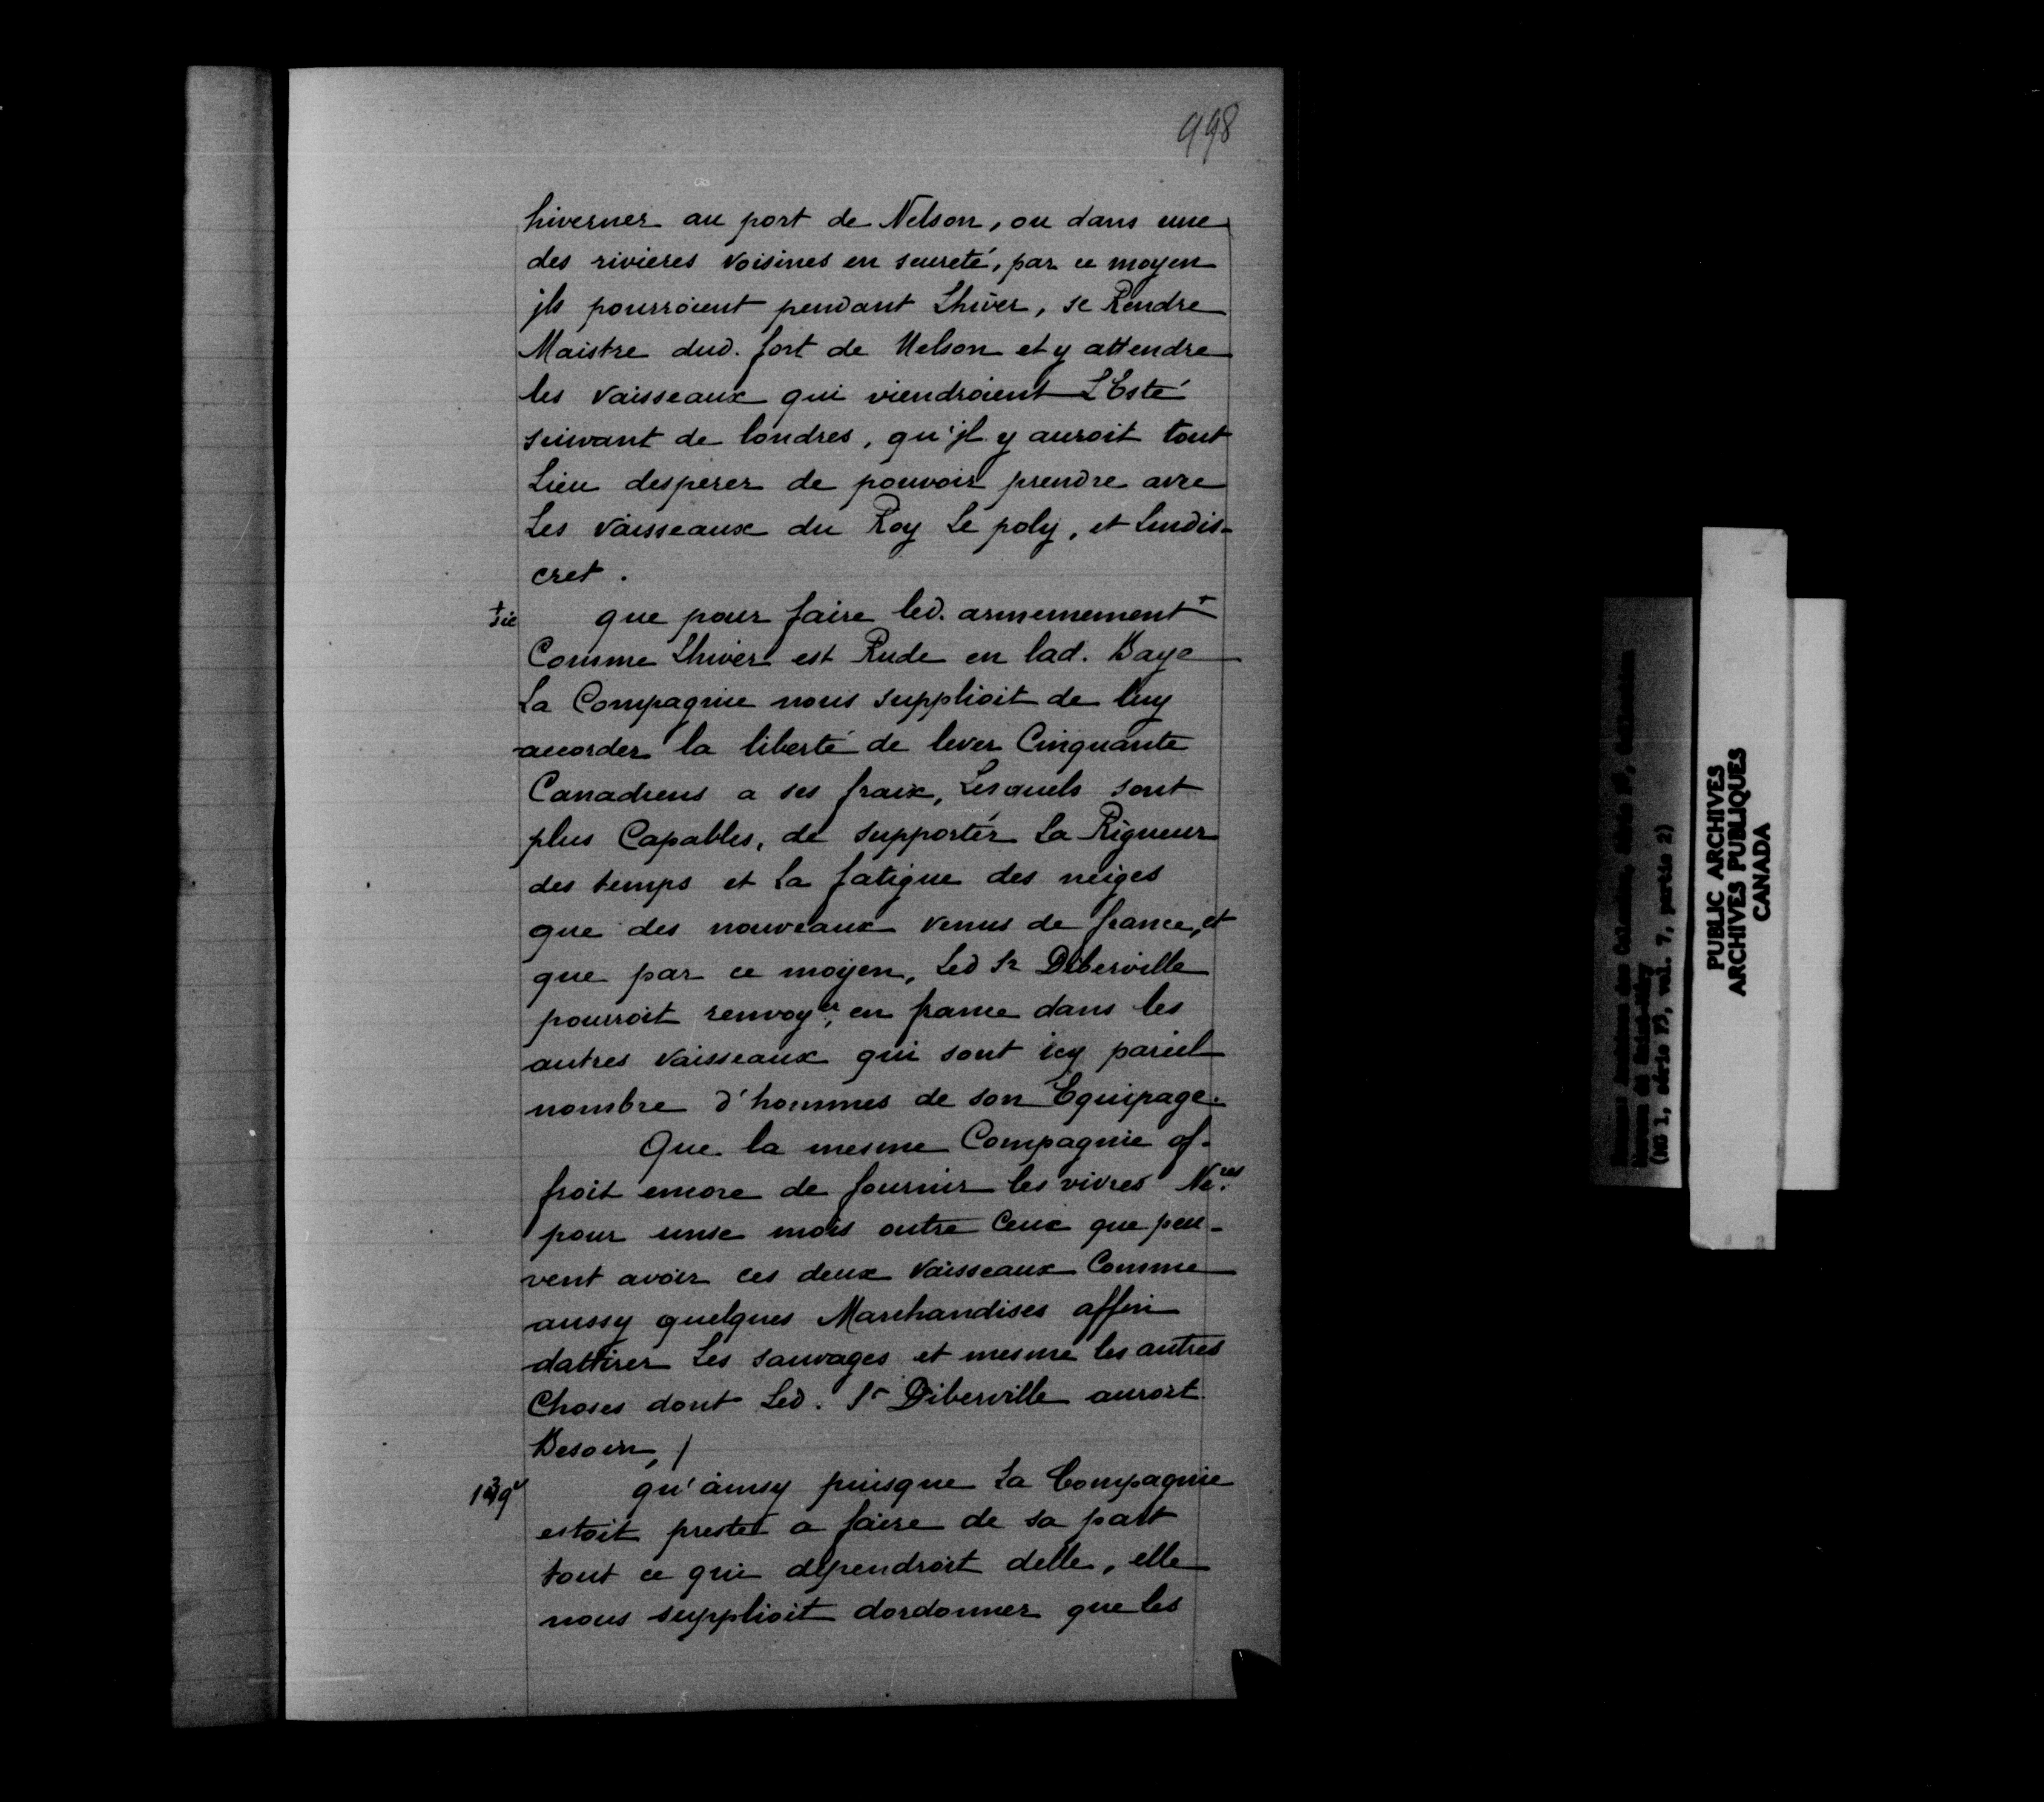 998
hiverner au port de Nelson, ou dans une
des rivieres voisines en seureté, par ce moyen
jls pourroient pendant Lhiver, se Rendre
Maistre dud. fort de Nelson et y attendre
les vaisseaux qui viendroient L'Esté
suivant de londres, qu'jl y auroit tout
Lieu desperer de pouvoir prendre avec
Les vaisseaux du Roy Le poly, et Lindis-
cret.
+ sic
que pour faire led. armemement +
Comme Lhiver est Rude en lad. Baye
La Compagnie nous supplioit de luy
accorder la liberté de lever Cinquante
Canadiens a ses fraix, Lesquels sont
plus Capables, de supporter La Rigueur
des temps et La fatigue des neiges
que des nouveaux venus de france, et
que par ce moyen, Led Sr Diberville
pourroit renvoyer, en france dans les
autres vaisseaux qui sont icy pareil
nombre d'hommes de son Equipage.
Que la mesme Compagnie of-
froit encore de fournir les vivres Nė.res
pour unse mois outre Ceux que peu-
vent avoir ces deux vaisseaux Comme
aussy quelques Marchandises affin
dattirer Les sauvages et mesme les autres
Choses dont Led. Sr Diberville auroit
Besoin, /
139v
qu'ainsy puisque La Compagnie
estoit preste a faire de sa part
tout ce qui dependroit delle, elle
nous supplioit dordonner que les
PUBLIC ARCHIVES
ARCHIVES PUBLIQUES
CANADA
(MG 1, série F3, vol. 7, partie 2)